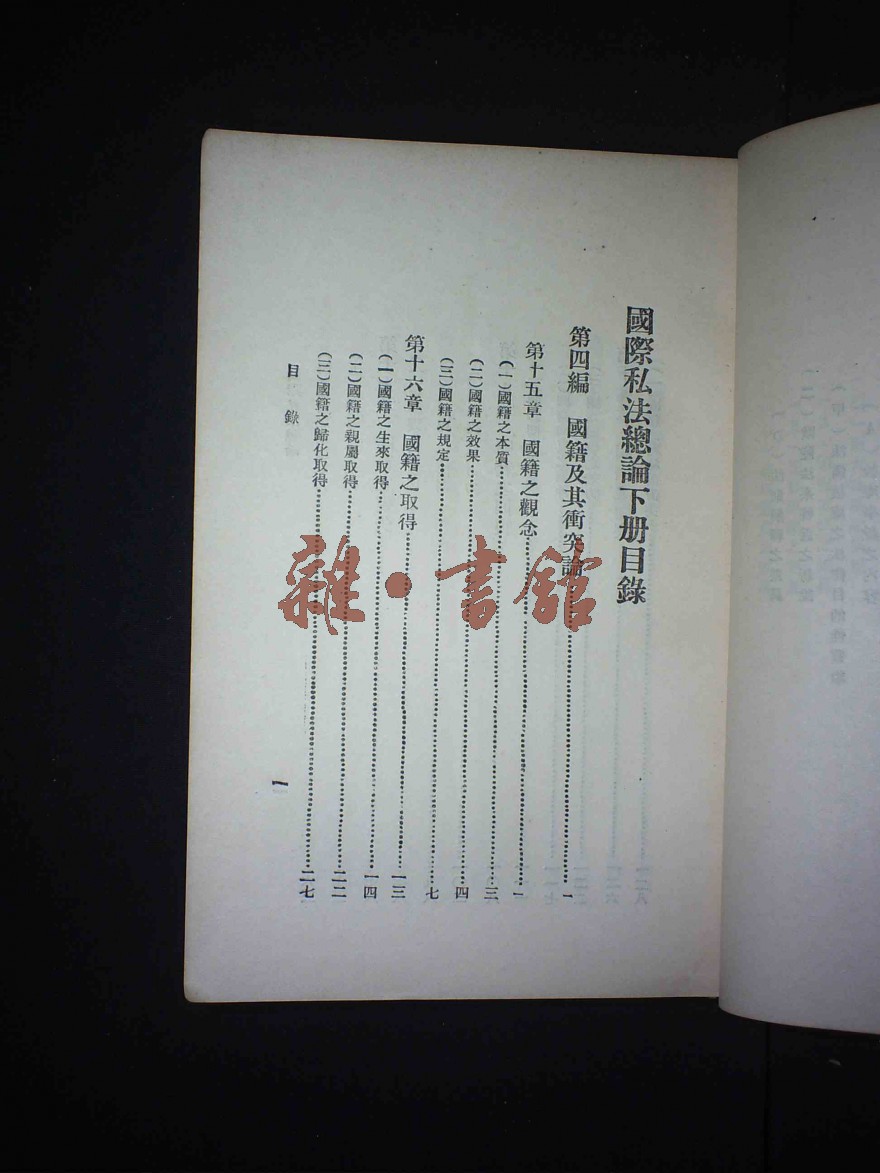 國際私法總論下册目錄
第四編 國籍及其衝突論……一
第十五章 國籍之觀念……一
(一)國籍之本質……三
(二)國籍之效果……四
(三)國籍之規定……七
第十六章 國籍之取得……一三
(一)國籍之生來取得……一四
(二)國籍之親屬取得……二二
(三)國籍之歸化取得……二七
目錄
一
雜·書館